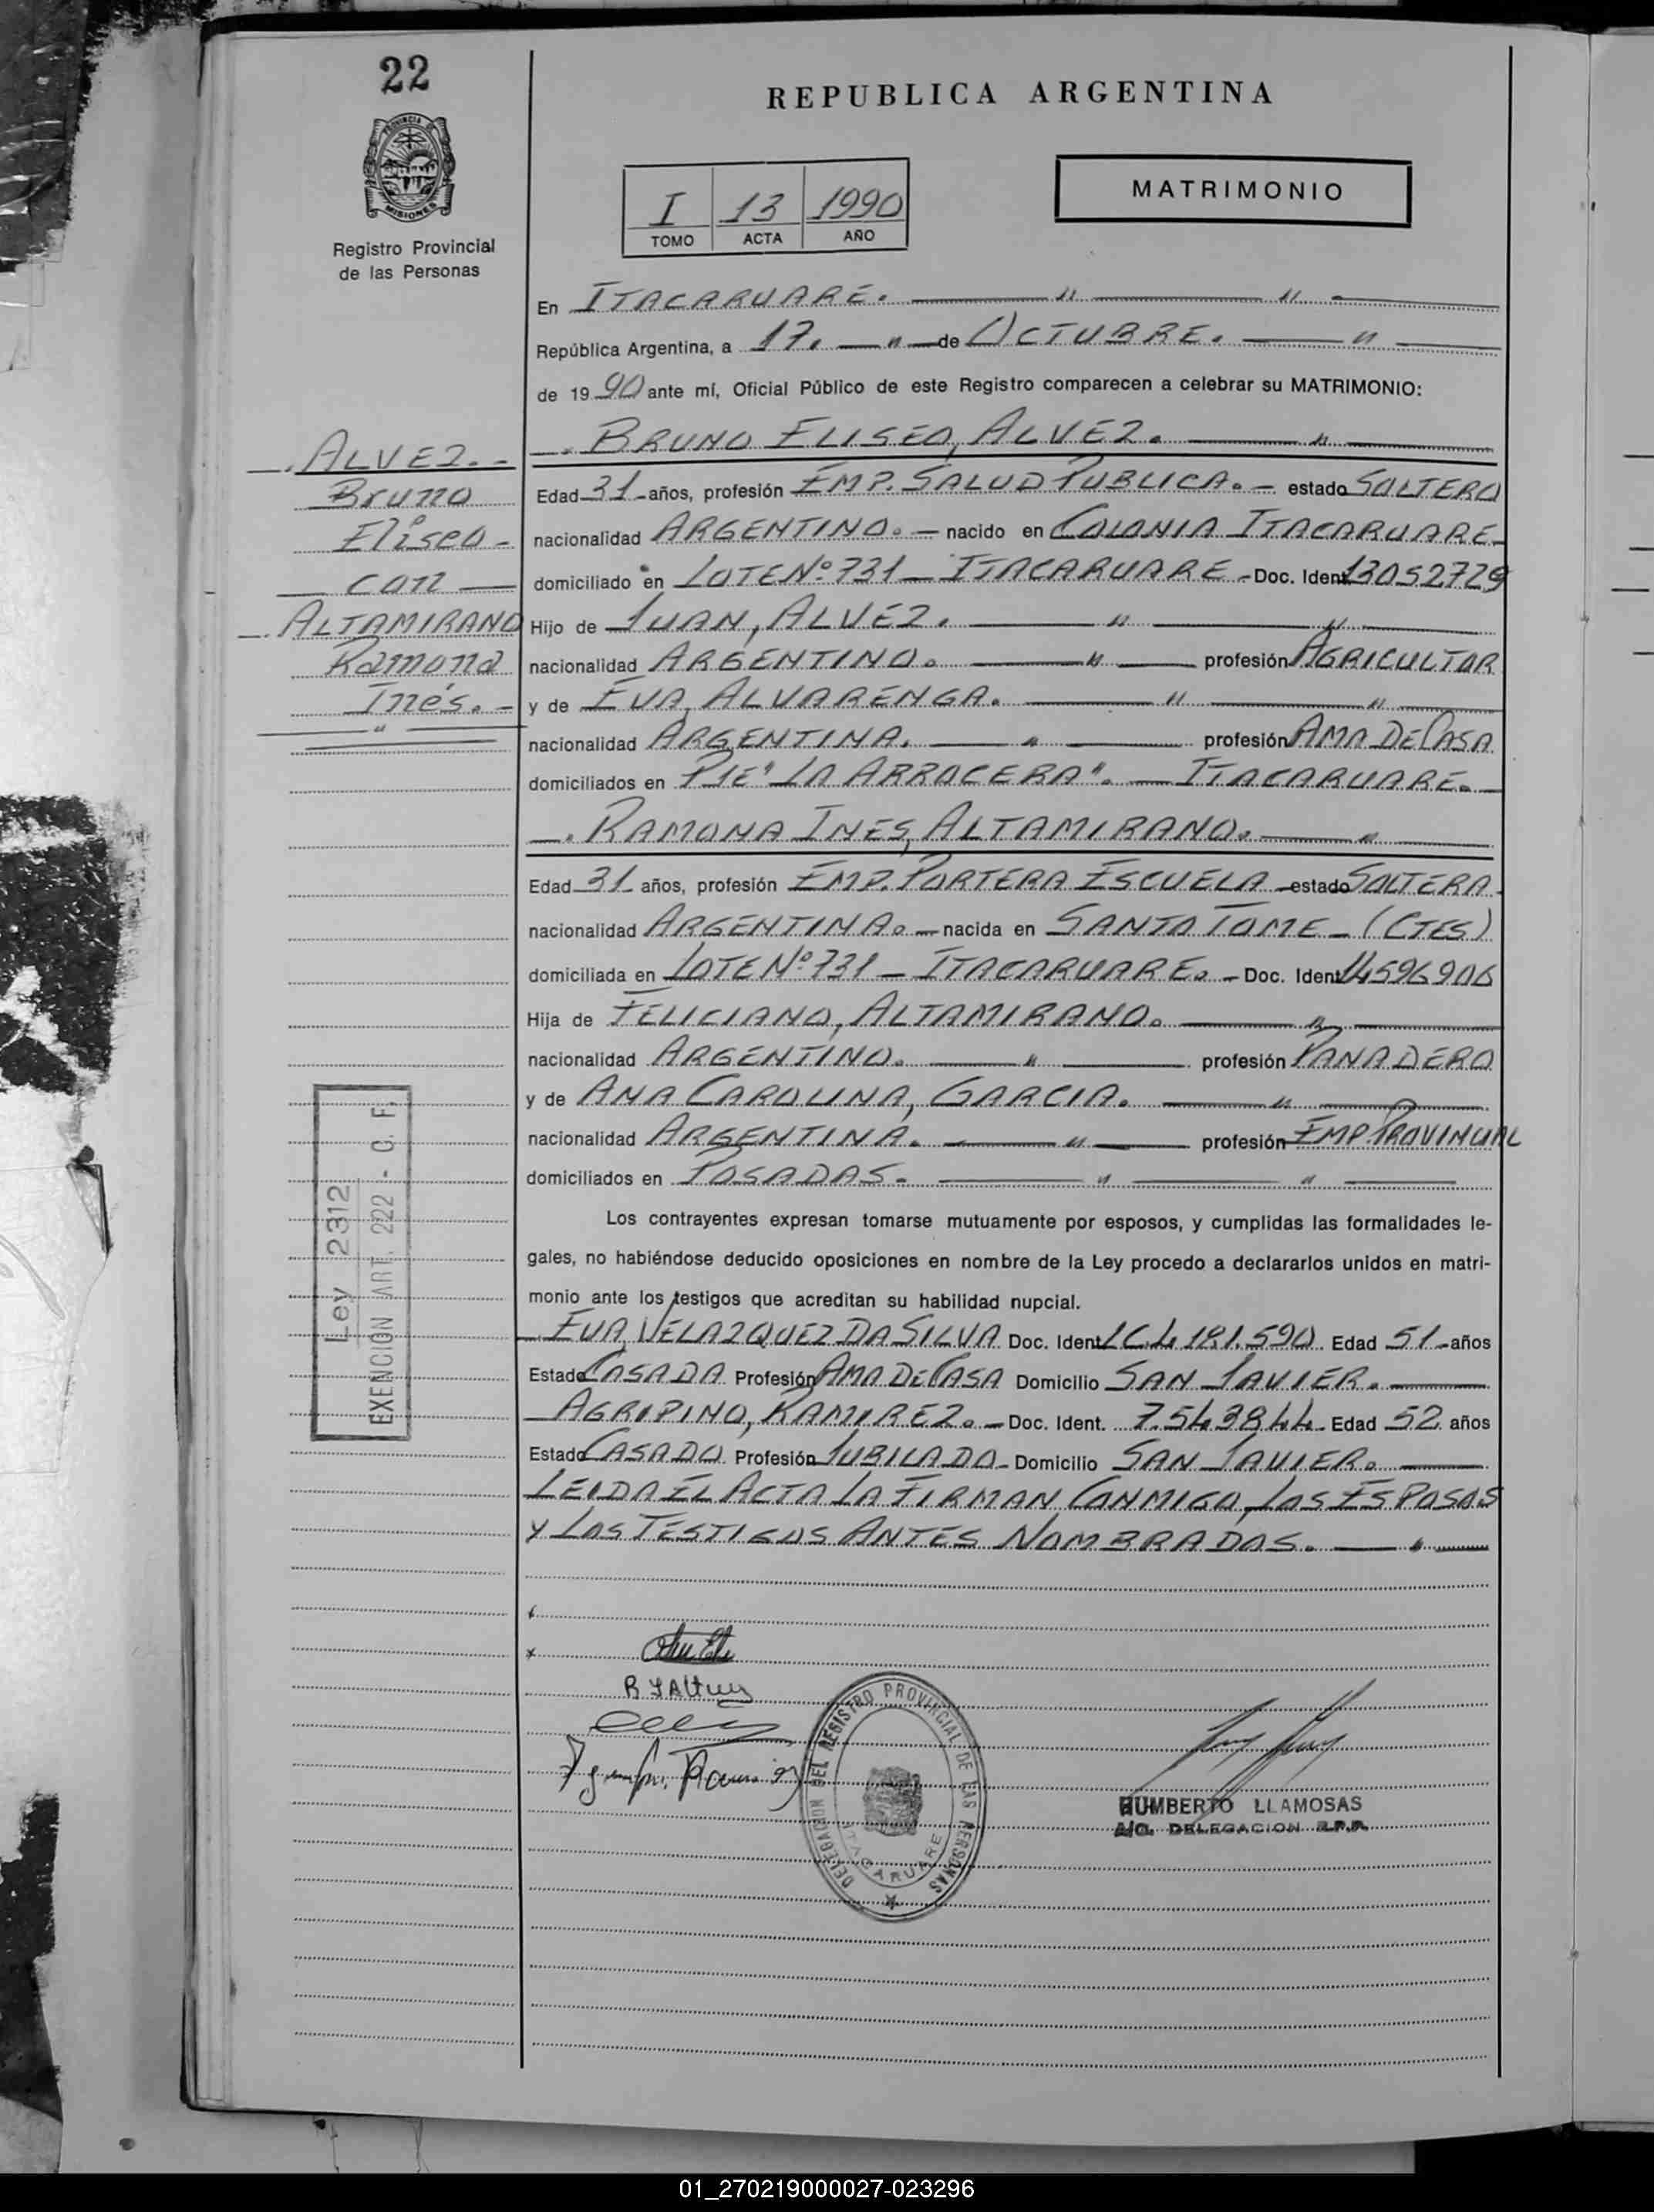 22
REPUBLICA ARGENTINA
PROVINCIA DE MISIONES
Registro Provincial
de las Personas
MATRIMONIO
I 13 1990
TOMO ACTA AÑO
En ITACARUARE.
República Argentina, a 17. de OCTUBRE.
de 1990 ante mí, Oficial Público de este Registro comparecen a celebrar su MATRIMONIO:
BRUNO ELISEO, ALVEZ.
ALVEZ.-
Bruno
Eliseo-
con
ALTAMIRANO
Ramona
Inés.-
Edad 31 años, profesión EMP. SALUD PUBLICA. - estado SOLTERO
nacionalidad ARGENTINO. - nacido en COLONIA ITACARUARE-
domiciliado en LOTE Nº 731 - ITACARUARE - Doc. Ident 13052729
Hijo de JUAN, ALVEZ.
nacionalidad ARGENTINO. profesión AGRICULTOR
y de EVA, ALVARENGA.
nacionalidad ARGENTINA. profesión AMA DE CASA
domiciliados en PJE "LA ARROCERA". - ITACARUARE.
RAMONA INES, ALTAMIRANO.
Edad 31 años, profesión EMP. PORTERA ESCUELA estado SOLTERA
nacionalidad ARGENTINA. - nacida en SANTO TOME - (CTES)
domiciliada en LOTE Nº 731 - ITACARUARE. - Doc. Ident 14596906
Hija de FELICIANO, ALTAMIRANO.
nacionalidad ARGENTINO. profesión PANADERO
y de ANA CAROLINA, GARCIA.
nacionalidad ARGENTINA. profesión EMP. PROVINCIAL
domiciliados en POSADAS.
Los contrayentes expresan tomarse mutuamente por esposos, y cumplidas las formalidades le-
gales, no habiéndose deducido oposiciones en nombre de la Ley procedo a declararlos unidos en matri-
monio ante los testigos que acreditan su habilidad nupcial.
EVA, VELAZQUEZ DA SILVA Doc. Ident LC.4.181.590 Edad 51 años
Estado CASADA Profesión AMA DE CASA Domicilio SAN JAVIER.
AGRIPINO, RAMIREZ. - Doc. Ident. 7.543844 Edad 52 años
Estado CASADO Profesión JUBILADO - Domicilio SAN JAVIER.
LEIDA EL ACTA LA FIRMAN CONMIGO, LOS ESPOSOS
Y LOS TESTIGOS ANTES NOMBRADOS.
Ley 2312
EXENCION ART. 222 - C. F.
DELEGACION DEL REGISTRO PROVINCIAL DE LAS PERSONAS
ITACARUARE
HUMBERTO LLAMOSAS
A/C. DELEGACION R.P.P.
01_270219000027-023296